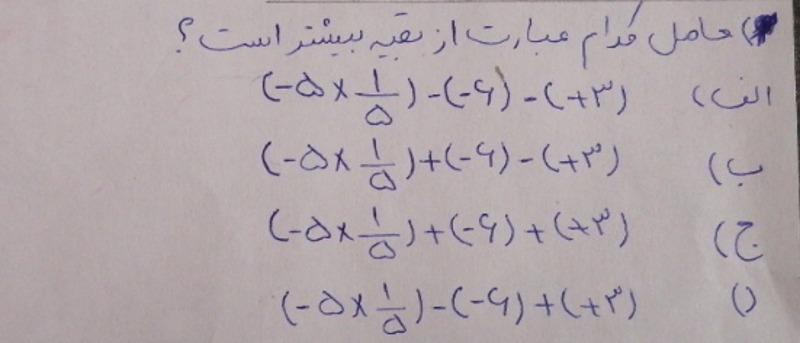 ) حاصل کدام عبارت از بقیه بیشتر است؟
الف) (-۵ × ۱/۵) - (-۶) - (+۳)
ب) (-۵ × ۱/۵) + (-۶) - (+۳)
ج) (-۵ × ۱/۵) + (-۶) + (+۳)
د) (-۵ × ۱/۵) - (-۶) + (+۳)